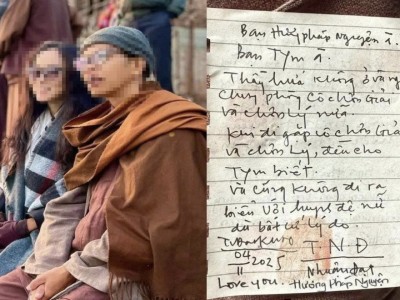 Ban Thầy pháp Nguyện ạ.
Ban Tym ạ.
Thầy hứa không ở
chung phòng cô chân Giải
và chân Lý nữa.
Khi đi gặp cô chân Giải
và chân Lý, đều cho
Tym biết.
và cũng không đi ra
biển với huynh đệ nữ
dù bất cứ lý do.
04 T N Đ
11 2025 Nhuận Đạt
Love you. Hương Pháp Nguyện